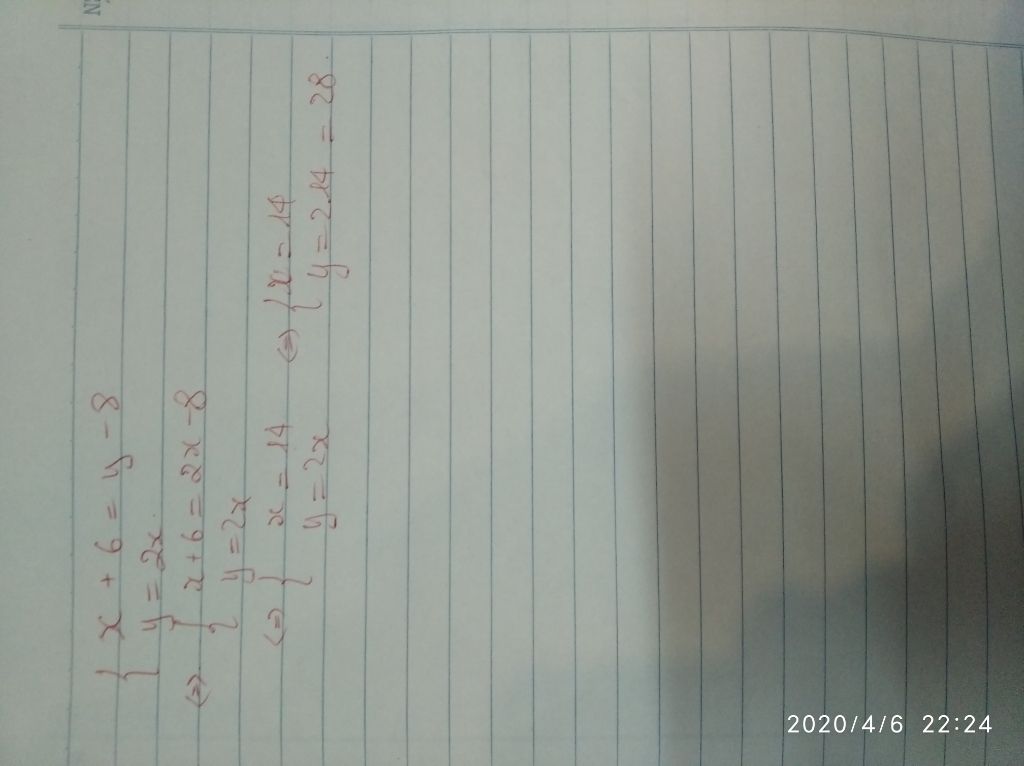 { x + 6 = y - 8
{ y = 2x.
<=> { x + 6 = 2x - 8
{ y = 2x
<=> { x = 14 <=> { x = 14
{ y = 2x { y = 2.14 = 28.
2020/4/6 22:24